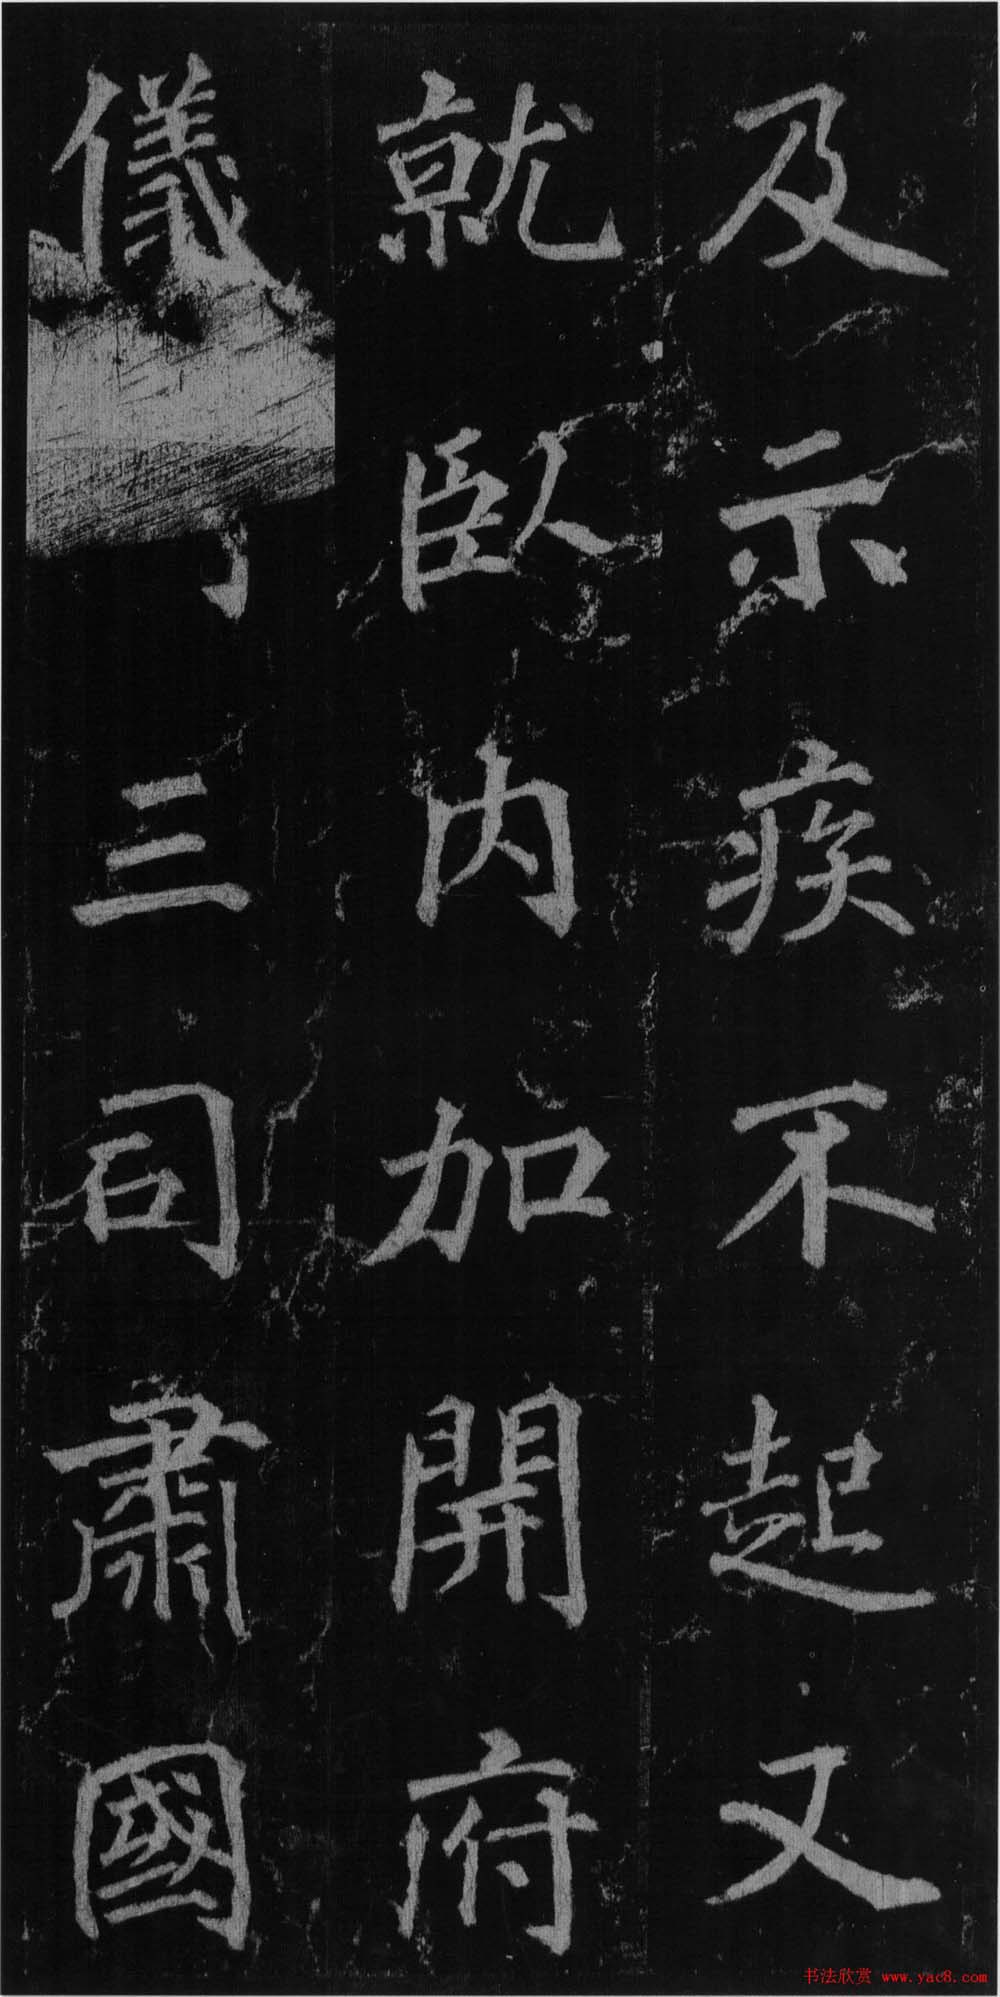 及示疾不起又
就臥內加開府
儀三司肅國
书法欣赏 www.yac8.com